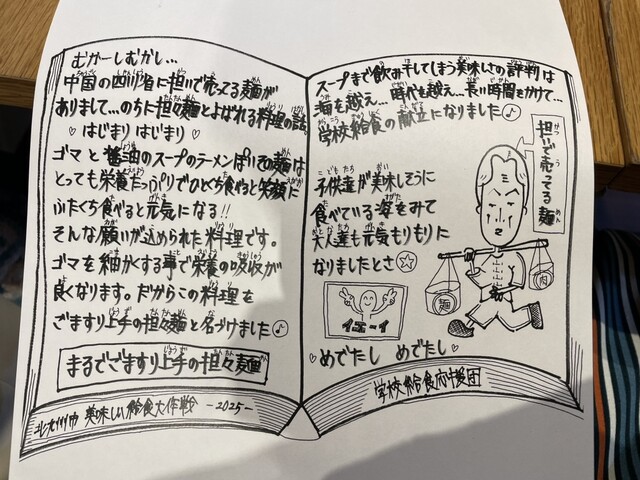 むかーしむかし...
中国の四川省に担いで売ってる麺が
ありまして...のちに担々麺とよばれる料理の話。
♡はじまり はじまり♡
ゴマと醤油のスープのラーメンぽいその麺は
とっても栄養たっぷりでひとくち食べると笑顔に
ふたくち食べると元気になる!!
そんな願いが込められた料理です。
ゴマを細かくする事で栄養の吸収が
良くなります。だからこの料理を
ごますり上手の担々麺と名づけました♪
まるでごますり上手の担々麺
北九州市 美味しい給食大作戦 -2025-
スープまで飲み干してしまう美味しさの評判は
海を越え...時代を越え...長い時間をかけて...
学校給食の献立になりました♪
子供達が美味しそうに
食べている姿をみて
大人達も元気もりもりに
なりましたとさ☆
担いで売ってる麺
麺
肉
イエーイ
♡めでたし めでたし♡
学校給食応援団